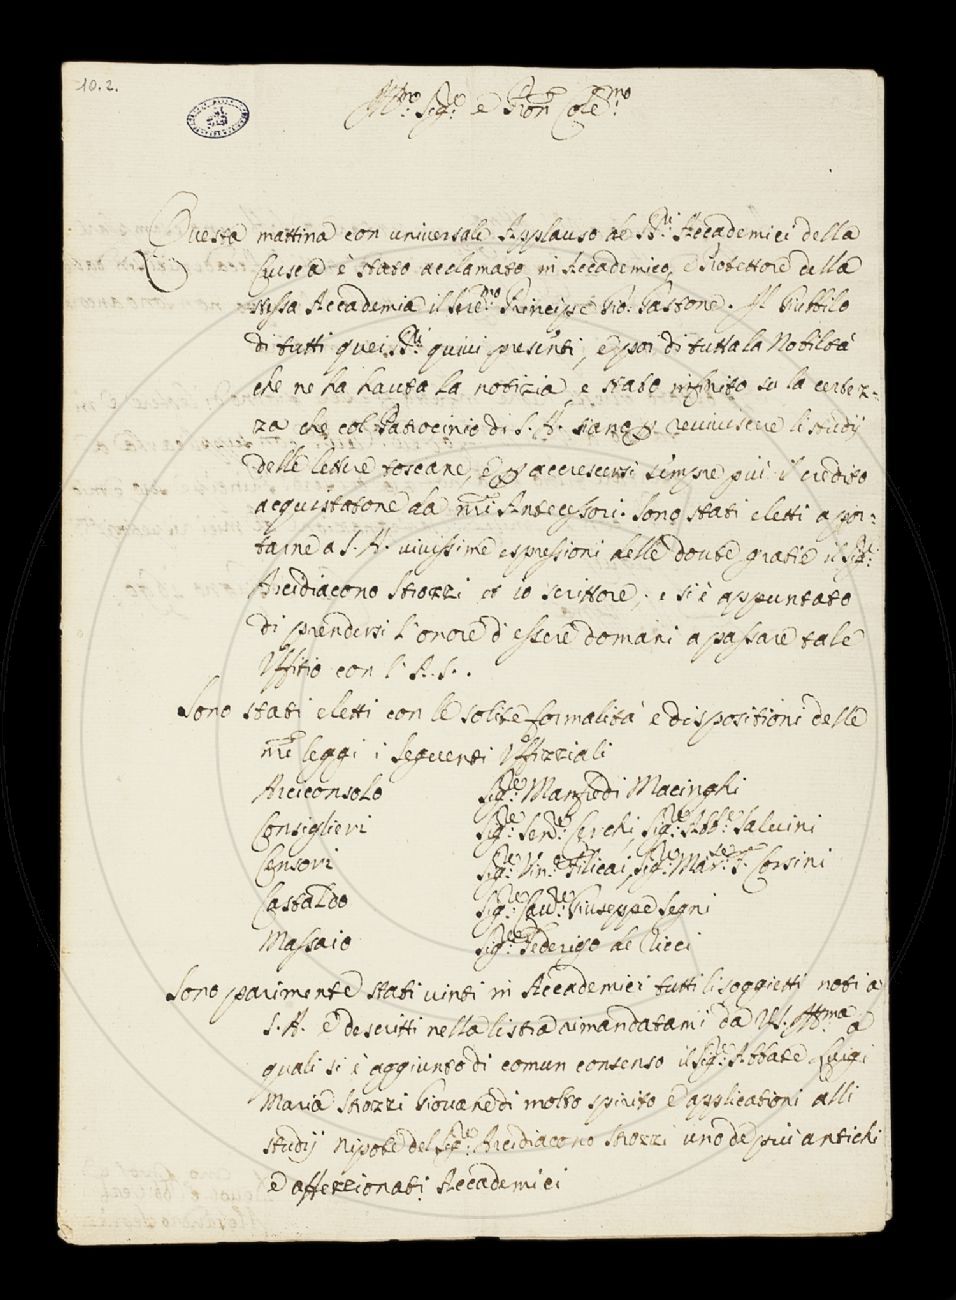 10.2.
Ill.mo Sig.re e Pron Col.mo
Questa mattina con universale Applauso de SS.ri Accademici della
Crusca è stato acclamato in Accademico, e Protettore della
stessa Accademia il Ser.mo Principe Gio: Gastone. Il Giubbilo
di tutti quei SS.ri quivi presenti, e poi di tutta la Nobiltà
che ne ha hauta la notizia, e stato infinito su la certez=
za che col Patrocinio di S. A. siano p reviviscere li studij
delle lettere toscane, e p accrescersi sempre più il credito
acquistatone da nri Antecessori. Sono stati eletti a por=
tarne a S. A. vivissime espressioni delle dovute gratie il Sig.re
Arcidiacono Strozzi et io scrittore; e si è appuntato
di prendersi l'onore d'essere domani a passare tale
Uffitio con l'A. S..
Sono stati eletti con le solite formalità e dispositioni delle
nre leggi i seguenti Uffizziali
Arciconsolo Sig.re Manfredi Macinghi
Consiglieri Sig.re Sen.re Cerchi, Sig.re Abb.e Salvini
Censori Sig.re Vin.o Filicai, Sig.re Mar.se F. Corsini
Castaldo Sig.re Cav.re Giuseppe Segni
Massaio Sig.re Federigo de Ricci
Sono parimente stati vinti in Accademici tutti li soggietti noti a
S. A. e descritti nella listra rimandatami da VS. Ill.ma a
quali si è aggiunto di comun consenso il Sig.re Abbate Luigi
Maria Strozzi Giovane di molto spirito e applicationi alli
studij Nipote del Sig.re Arcidiacono Strozzi uno de più antichi
e affezzionati Accademici